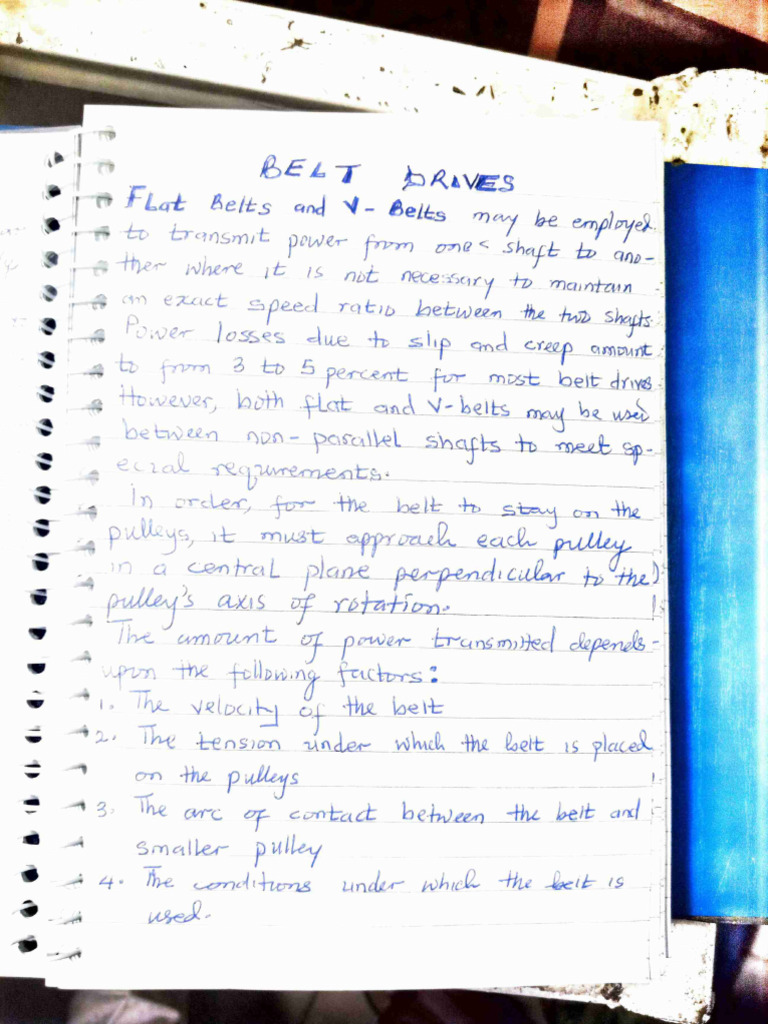 BELT DRIVES
Flat Belts and V-Belts may be employed
to transmit power from one shaft to ano-
ther where it is not necessary to maintain
an exact speed ratio between the two shafts.
Power losses due to slip and creep amount
to from 3 to 5 percent for most belt drives.
However, both flat and V-belts may be used
between non-parallel shafts to meet sp-
ecial requirements.
In order, for the belt to stay on the
pulleys, it must approach each pulley
in a central plane perpendicular to the
pulley's axis of rotation.
The amount of power transmitted depends
upon the following factors:
1. The velocity of the belt
2. The tension under which the belt is placed
on the pulleys
3. The arc of contact between the belt and
smaller pulley
4. The conditions under which the belt is
used.